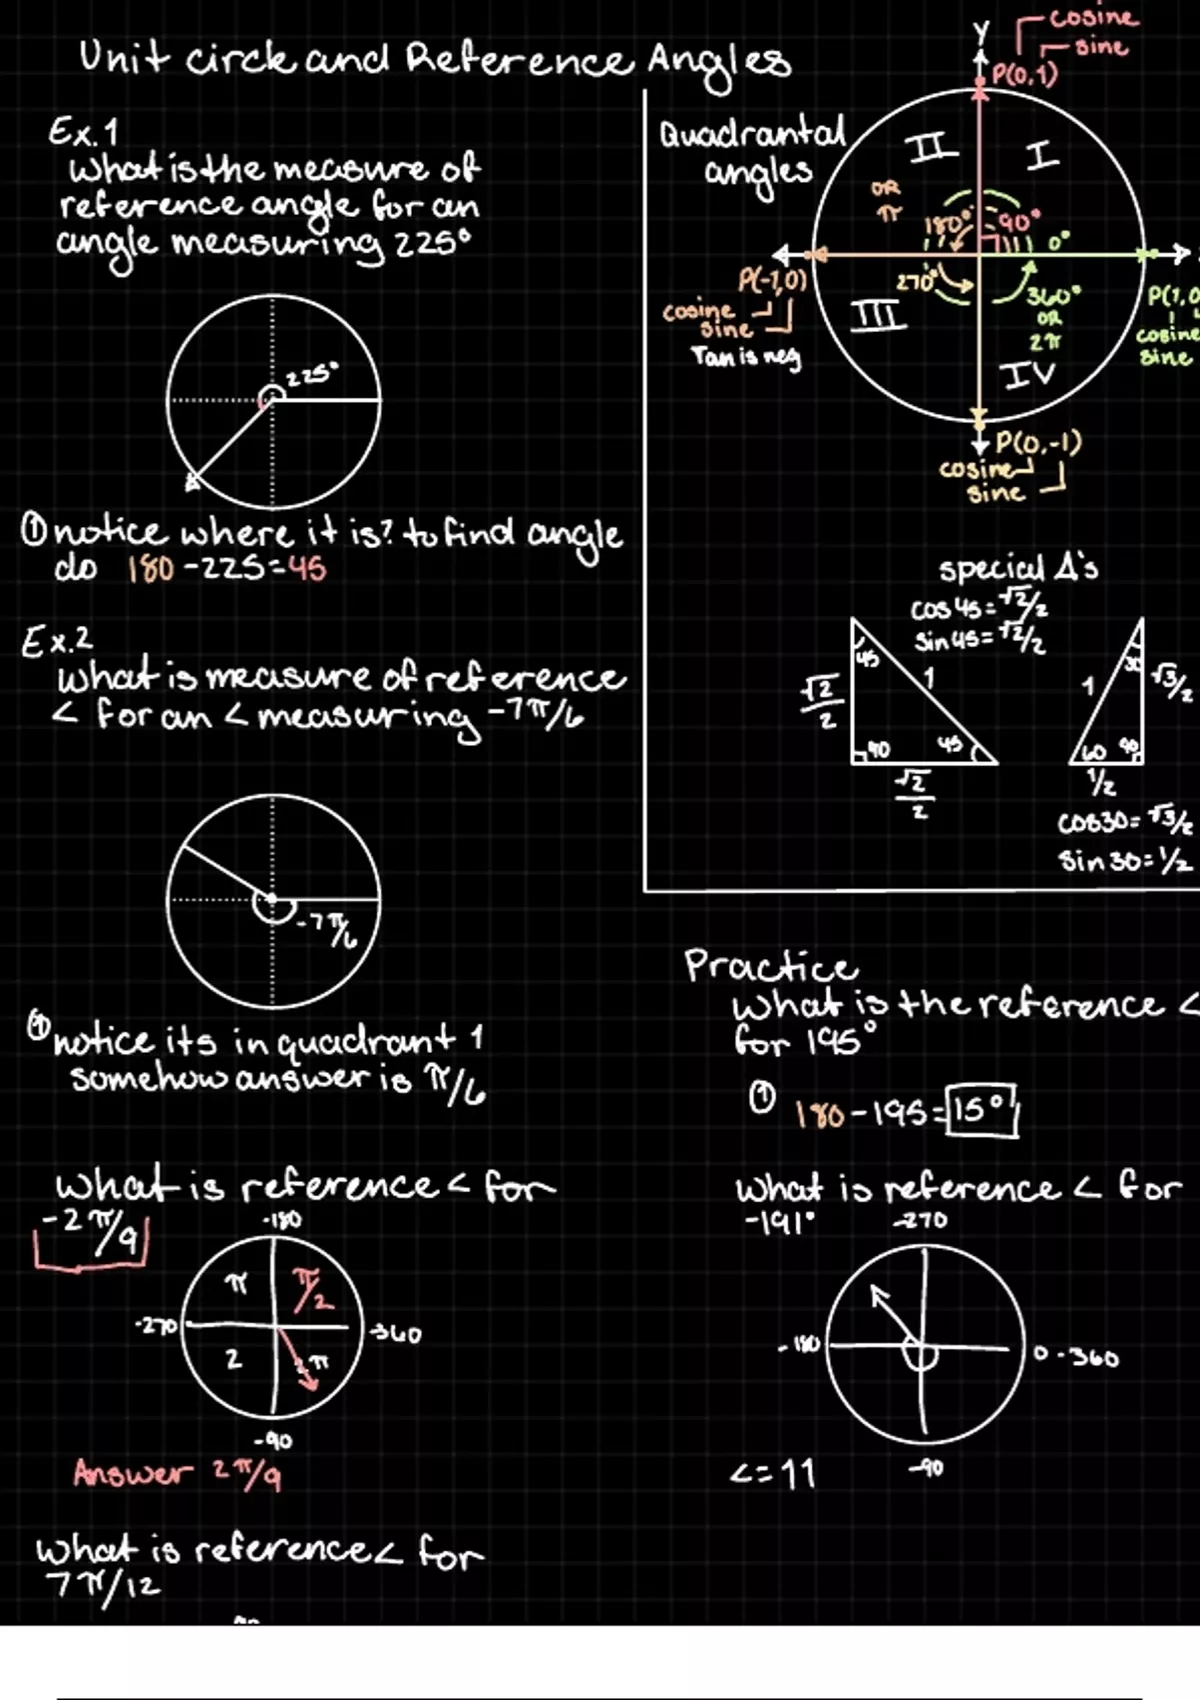 Unit circle and Reference Angles
Ex.1
What is the measure of
reference angle for an
angle measuring 225°
225°
① notice where it is? to find angle
do 180 - 225 = 45
Ex.2
What is measure of reference
< for an < measuring -7π/6
-7π/6
① notice its in quadrant 1
somehow answer is π/6
What is reference < for
-2π/9
-180
π
π/2
-270
-360
2
π
-90
Answer 2π/9
What is reference < for
7π/12
Y
cosine
sine
P(0,1)
Quadrantal
angles
II
I
OR
π
180°
90°
0°
P(-1,0)
cosine
sine
Tan is neg
270°
360°
OR
2π
P(1,0
cosine
sine
III
IV
P(0,-1)
cosine
sine
special Δ's
cos 45 = √2/2
sin 45 = √2/2
45
1
√2/2
90
45
√2/2
30
1
√3/2
60
90
1/2
cos30 = √3/2
sin 30 = 1/2
Practice
What is the reference <
for 195°
① 180 - 195 = 15°
What is reference < for
-191°
-270
-180
0 -360
-90
< = 11